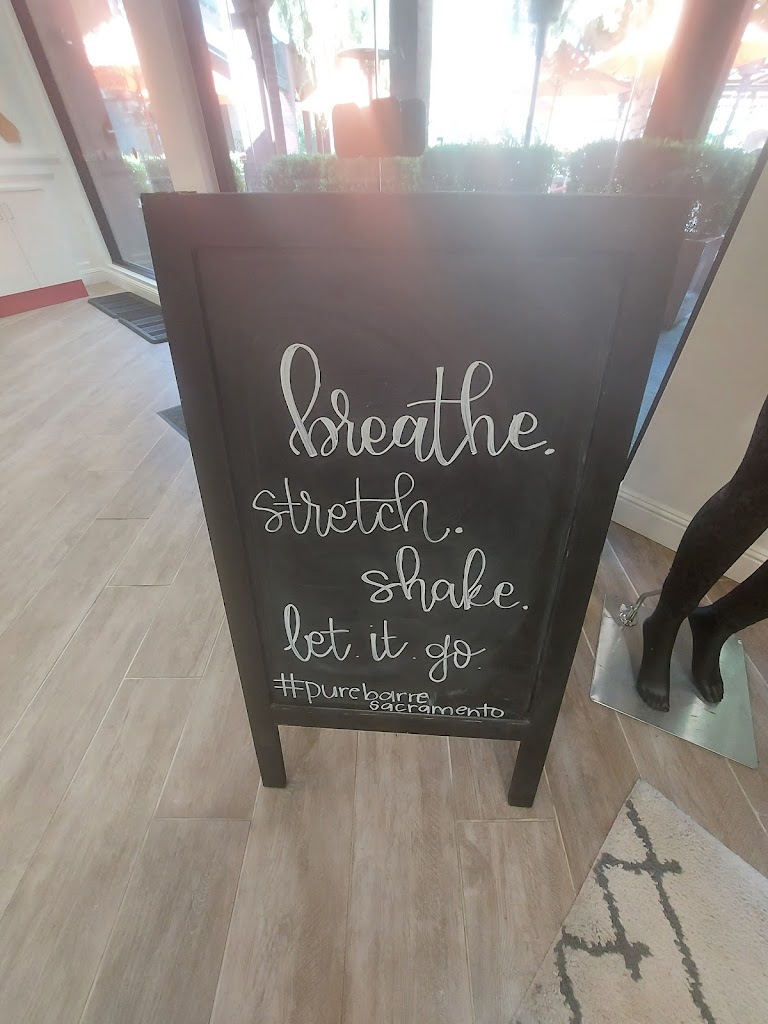 breathe.
stretch.
shake.
let.it.go.
#purebarre
sacramento